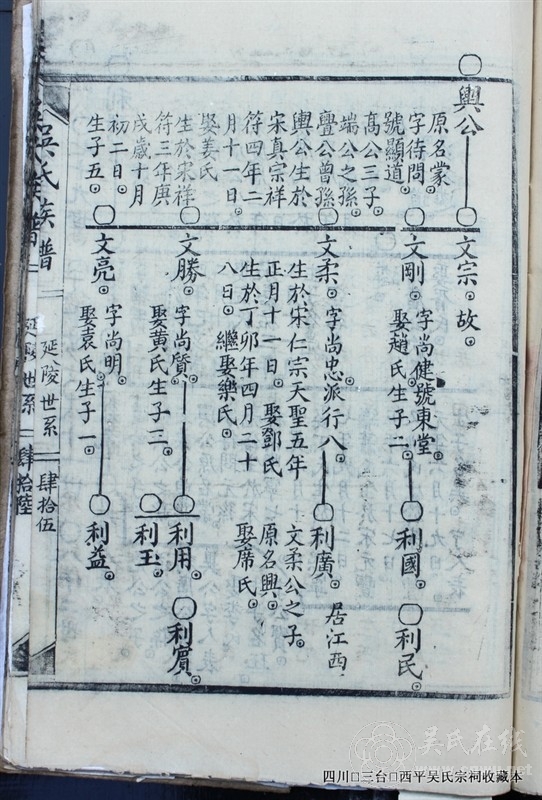 輿公
原名蒙
字待問
號顯道
高公三子
端公之孫
亹公曾孫
輿公生於
宋真宗祥
符四年二
月十一日
娶姜氏
生於宋祥
符三年庚
戌歲十月
初二日
生子五
文宗故
文剛
字尚健號東堂
娶趙氏生子二
利國
利民
文柔
字尚忠派行八
生於宋仁宗天聖五年
正月十一日娶鄧氏
生於丁卯年四月二十
八日繼娶樂氏
利廣
居江西
文柔公之子
原名興
娶席氏
文勝
字尚質
娶黃氏生子三
利用
利賓
利玉
文亮
字尚明
娶袁氏生子一
利益
吳氏族譜
延陵世系
肆拾伍
延陵世系
肆拾陸
吴氏在线
四川□三台□西平吴氏宗祠收藏本